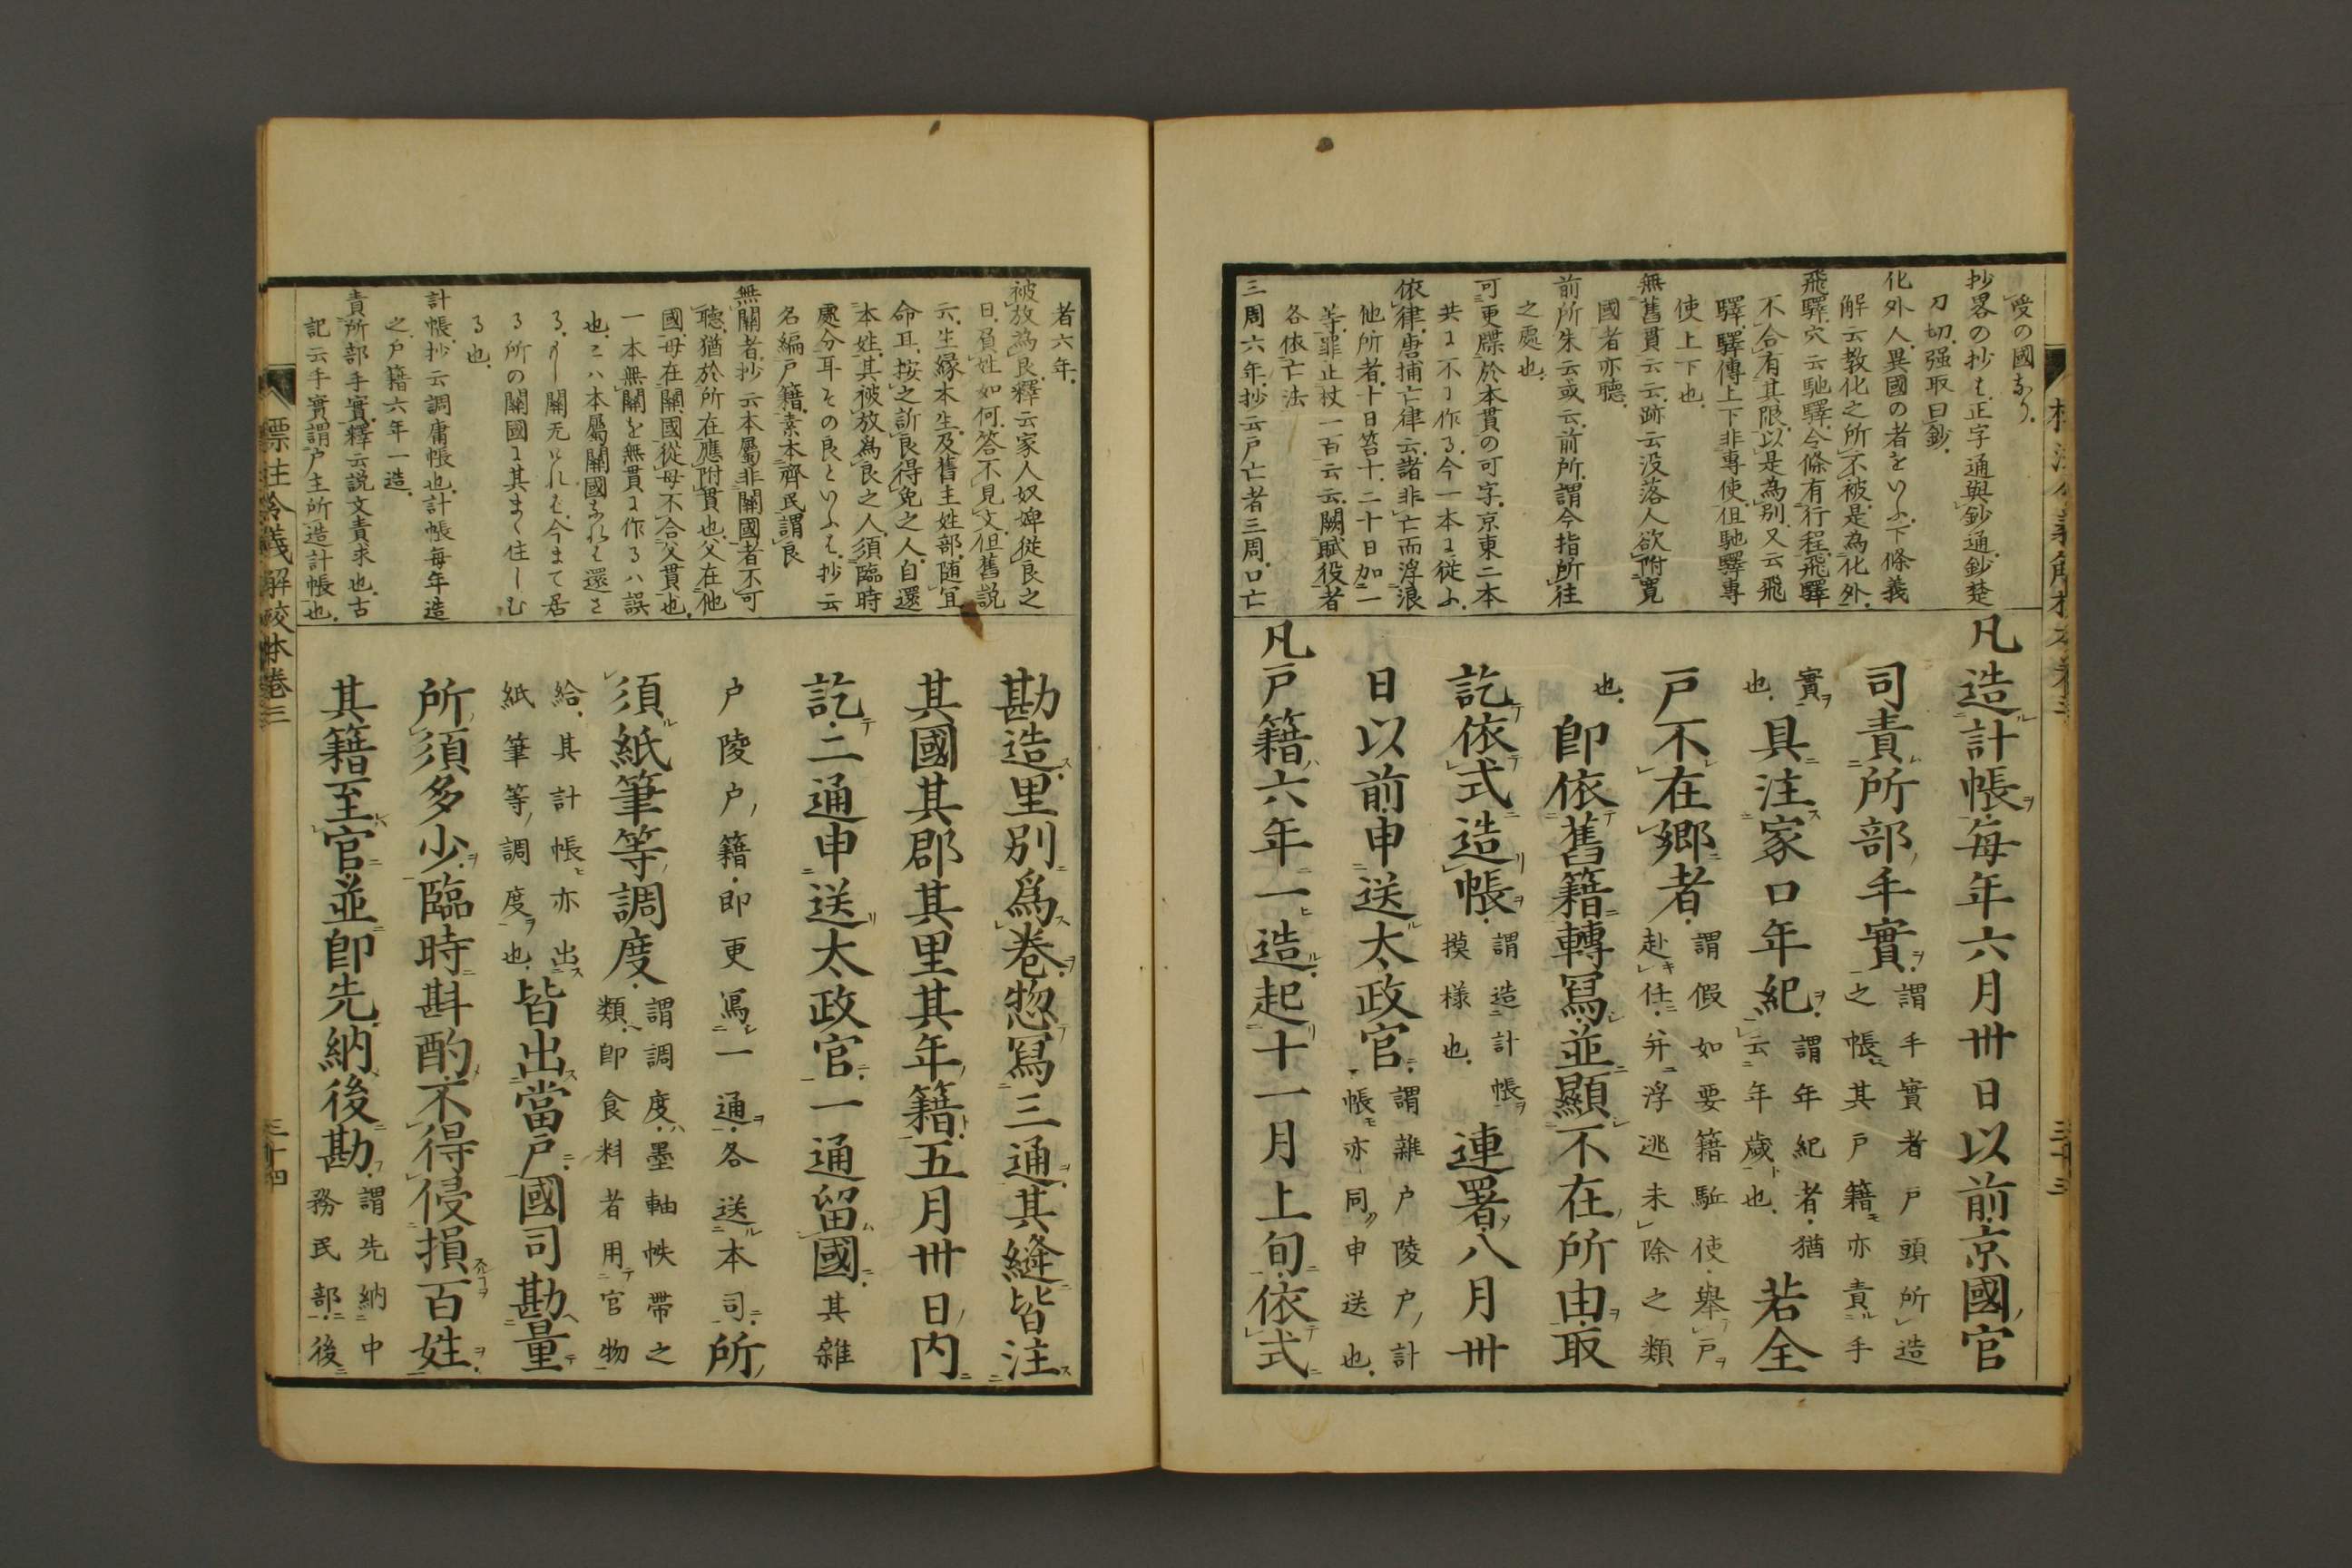 受の國なり
抄畧の抄ハ正字通與鈔通鈔楚
刀切强取曰鈔
化外人異國の者をいふ下條義
解云教化之所不被是為化外
飛驛穴云馳驛令條有行程飛驛
不合有其限以是為別又云飛
驛驛傳上下非專使但馳驛專
使上下也
無舊貫云云跡云没落人欲附寛
國者亦聽
前所朱云或云前所謂今指所往
之處也
可更牒於本貫の可字京東二本
共ニ不ニ作る今一本ニ従ふ
依律唐捕亡律云諸非亡而浮浪
他所者十日笞十二十日加一
等罪止杖一百云云闕賦役者
各依亡法
三周六年抄云戸亡者三周口亡
凡造計帳毎年六月卅日以前京國官
司責所部手實謂手實者戸頭所造
之帳其戸籍亦責手
實
也具注家口年紀謂年紀者猶
云年歳也若全
戸不在郷者謂假如要籍駈使舉戸
赴任并浮逃未除之類
也即依舊籍轉冩並顯不在所由取
訖依式造帳謂造計帳
摸様也連署八月卅
日以前申送太政官謂雜戸陵戸計
帳亦同申送也
凡戸籍六年一造起十一月上旬依式
三十三
者六年
被放為良釋云家人奴婢従良之
日員姓如何答不見文但舊説
云生縁本生及舊主姓部随宜
命耳按之訴良得免之人自還
本姓其被放為良之人須臨時
處分耳その良といふハ抄云
名編戸籍素本齊民謂良
無關者抄云本屬非關國者不可
聽猶於所在應附貫也父在他
國母在關國從母不合父貫也
一本無關を無貫ニ作るハ誤
也こハ本屬關國なれハ還さ
る所の關國ニ其まゝ住しむ
る也
計帳抄云調庸帳也計帳毎年造
之戸籍六年一造
責所部手實釋云説文責求也古
記云手實謂戸主所造計帳也
勘造里別爲巻惣冩三通其縫皆注
其國其郡其里其年籍五月卅日内
訖二通申送太政官一通留國其雜
戸陵戸籍即更冩一通各送本司所
須紙筆等調度謂調度墨軸帙帶之
類即食料者用官物
給其計帳亦出
紙筆等調度也皆出當戸國司勘量
所須多少臨時斟酌不得侵損百姓
其籍至官並即先納後勘謂先納中
務民部後
標注令義解校本巻三
三十四